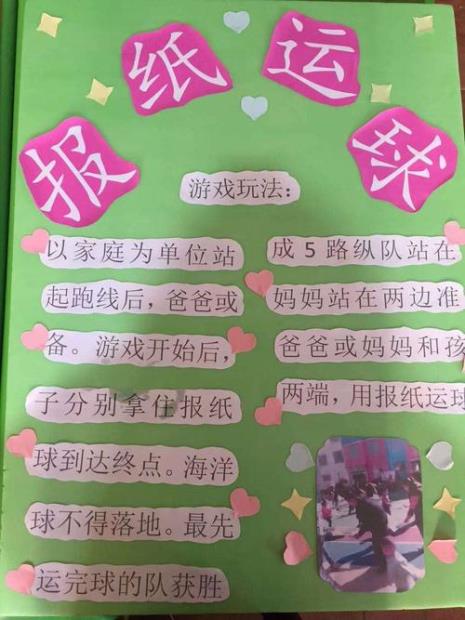 报纸运球
游戏玩法：
以家庭为单位站成5路纵队站在
起跑线后，爸爸或妈妈站在两边准
备。游戏开始后，爸爸或妈妈和孩
子分别拿住报纸两端，用报纸运球
球到达终点。海洋
球不得落地。最先
运完球的队获胜